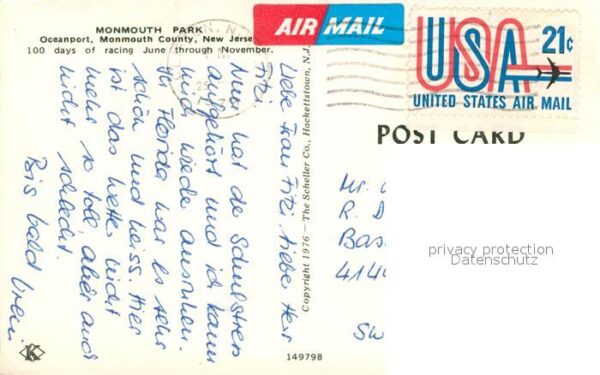 MONMOUTH PARK
Oceanport, Monmouth County, New Jerse
100 days of racing June through November.
AIR MAIL
USA 21c
UNITED STATES AIR MAIL
POST CARD
Liebe Frau Fitzi, liebe Herr
Fitzi.
Nun hat de Schulstress
aufgehört und ich kann
mich wieder ausruhen.
In Florida war es sehr
schön und heiss. Hier
ist das Wetter nicht
mehr so toll, aber auch
nicht schlecht.
Bis bald
Copyright 1976 – The Scheller Co., Hackettstown, N.J.
Mr.
R. D
Bas
414
SW
privacy protection
Datenschutz
K
149798